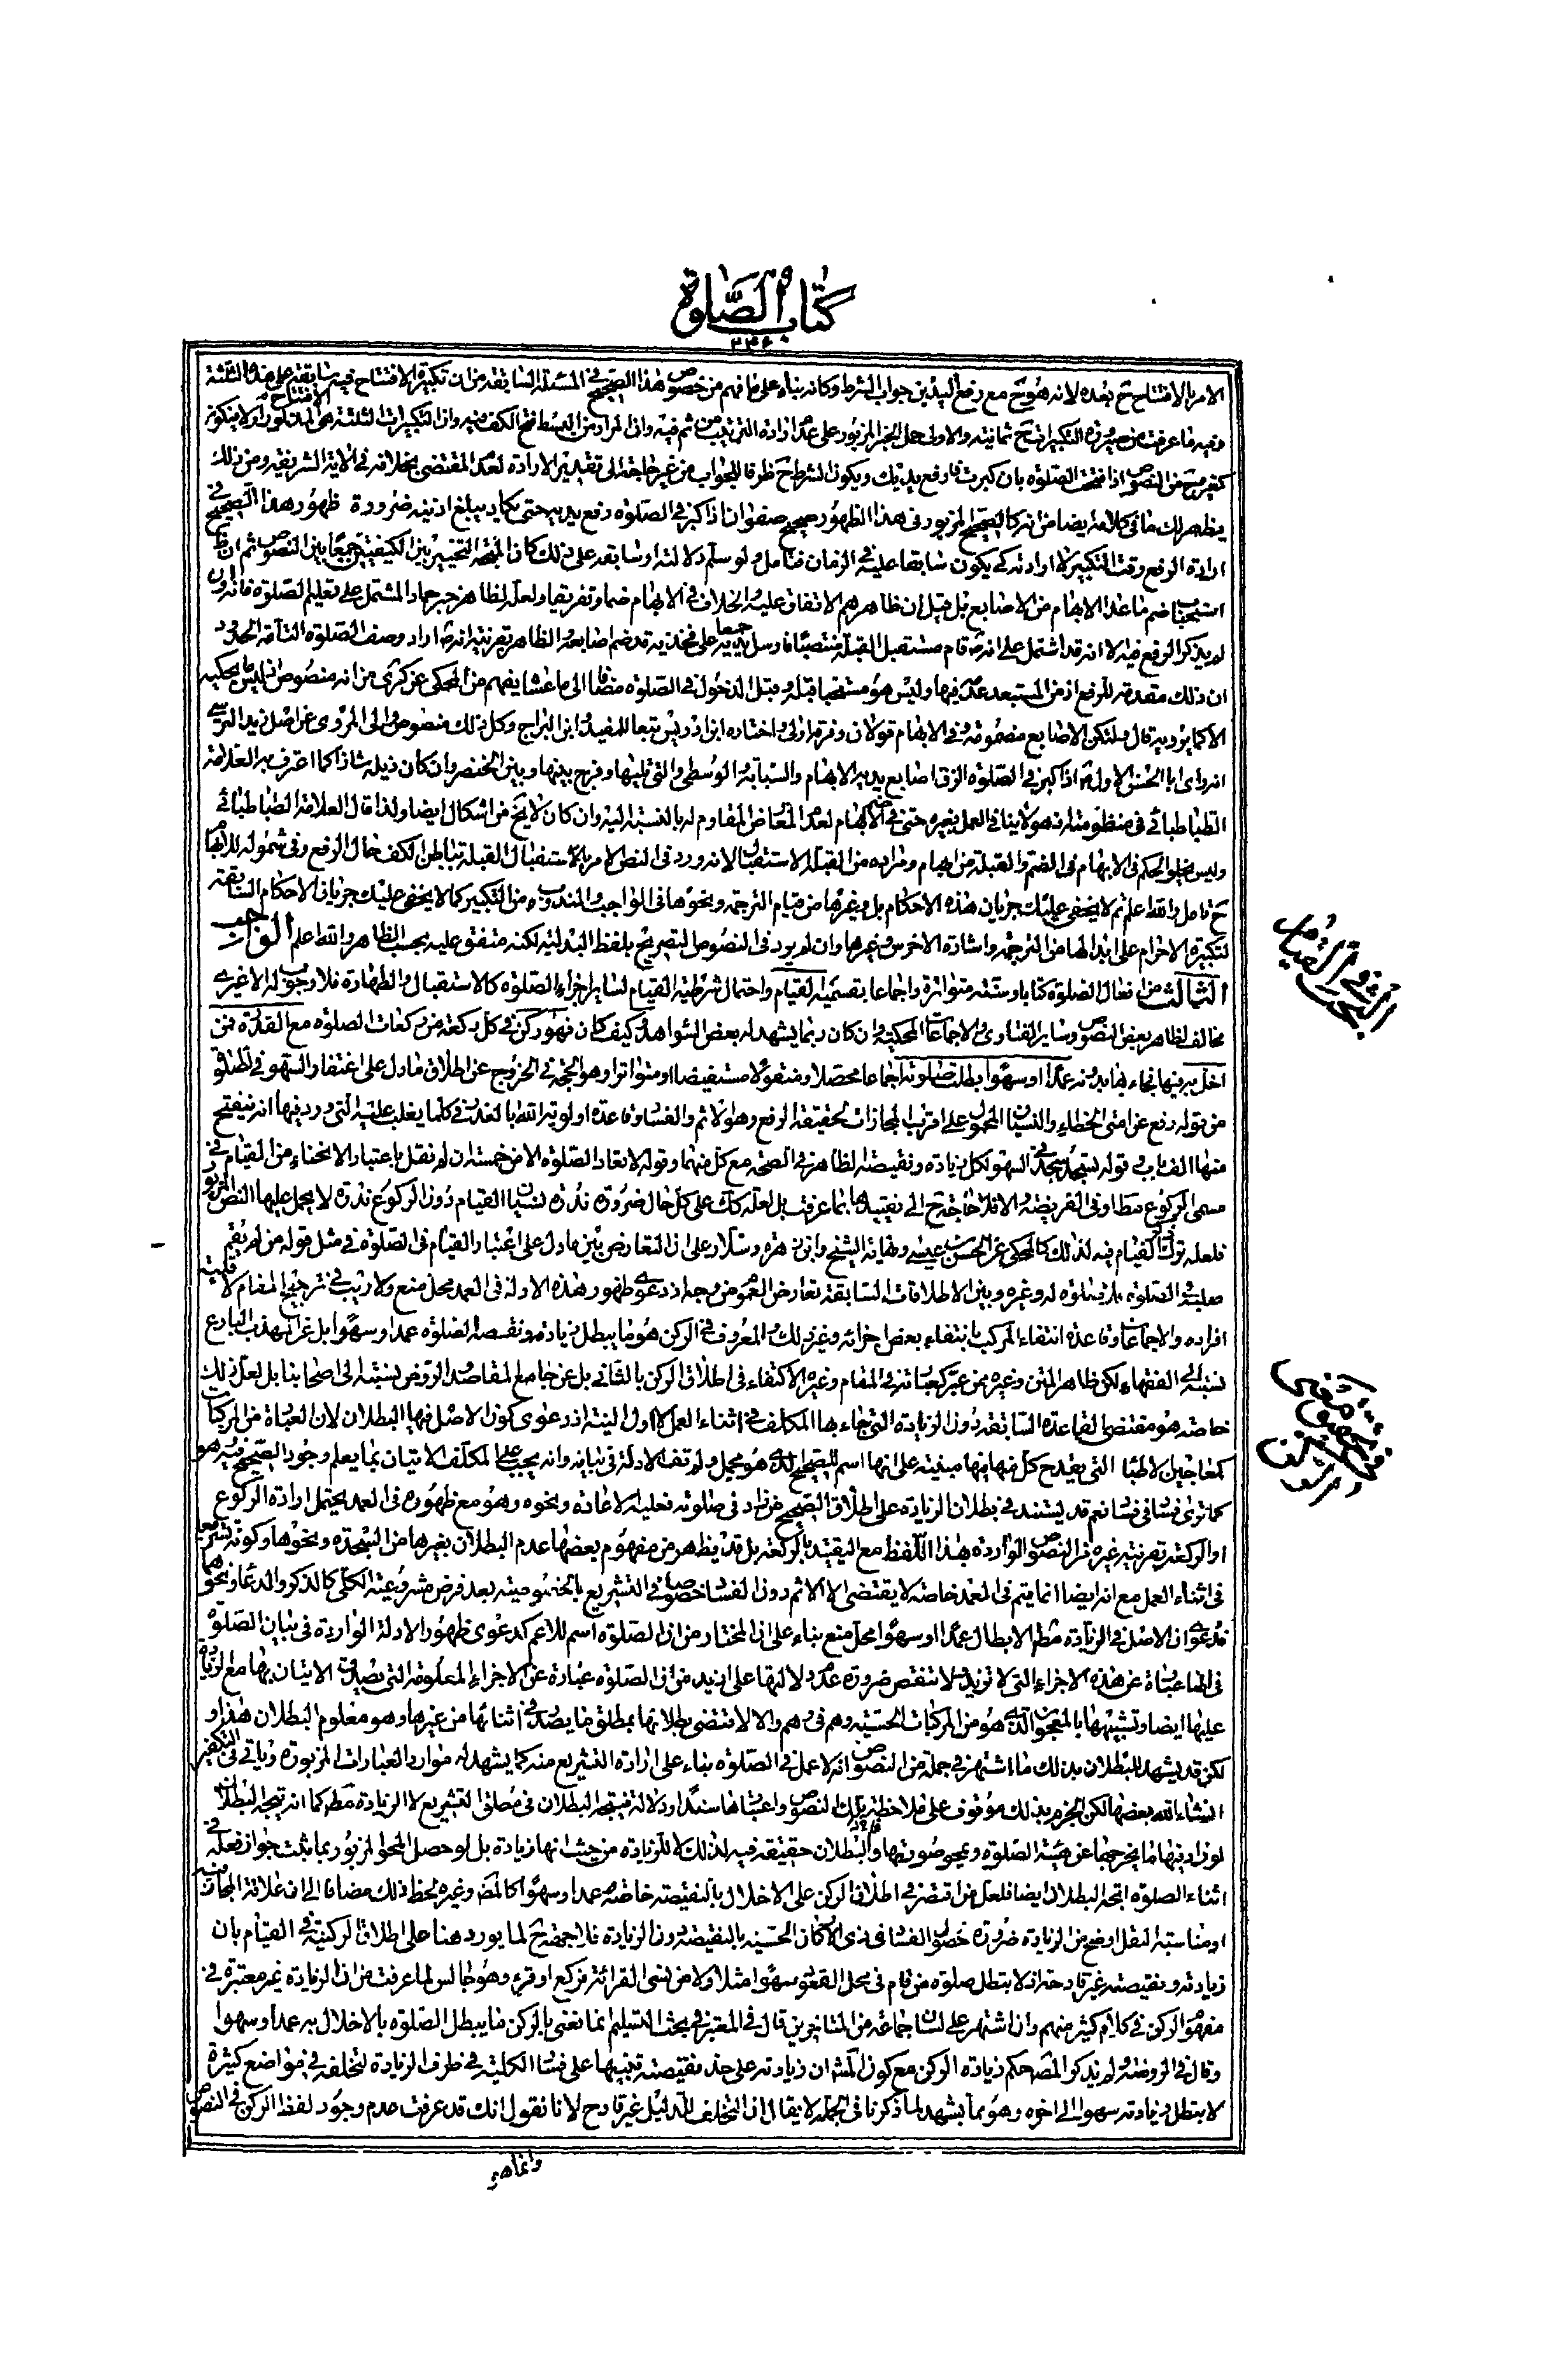 كتاب الصلوة
٢٣٤
الامر بالافتتاح ح بعده لانه هو ح مع رفع اليدين جواب الشرط وكانه بناه على ما فهم من خصوص هذا الصحيح في المسئلة السابقة من ان تكبيرة الافتتاح فيه سابقة على هذه الثلثة
وفيه ما عرفت من صيرورة التكبيرات ح ثمانية والاولى حمل الخبر المزبور على عدم ارادة الترتيب من ثم فيه وان المراد من البسط فتح الكف فيه وان التكبيرات الثلثة هي المذكورة اولا فيكون الافتتاح
كغيره من النصوص اذا افتتحت الصلوة بان كبرت فارفع يديك ويكون الشرط ح ظرفا للجواب من غير حاجة الى تقدير الارادة لعدم المقتضي بخلافه في الاية الشريفة ومن ذلك
يظهر لك ما في كلامه ايضا من انه كالصحيح المزبور في هذا الظهور صحيح صفوان اذا كبر في الصلوة رفع يديه حتى يكاد يبلغ اذنيه ضرورة ظهور هذا الصحيح في
ارادة الرفع وقت التكبير لا ارادته كي يكون سابقا عليه في الزمان فتامل ولو سلم دلالته او سابقه على ذلك كان المتجه التخيير بين الكيفيتين جمعا بين النصوص ثم ان ظ
استحباب ضم ما عدا الابهام من الاصابع بل قيل ان ظاهرهم الاتفاق عليه والخلاف في الابهام ضما وتفريقا ولعله لظاهر خبر حماد المشتمل على تعليم الصلوة فانه وان
لم يذكر الرفع فيه الا انه قد اشتمل على انه ع قام مستقبل القبلة منتصبا فارسل يديه جميعا على فخذيه قد ضم اصابعه والظاهر بقرينة انه ع اراد وصف الصلوة التامة الحدود
ان ذلك مقدمة للرفع اذ من المستبعد عدمه فيها وليس هو مستحبا قبله وقبل الدخول في الصلوة مضافا الى ما عساه يفهم من المحكي عن كرى من انه منصوص اذ ليس ما يحكيه
الا كما يرويه قال ولتكن الاصابع مضمومة وفي الابهام قولان وفرقه اولى واختاره ابن ادريس تبعا للمفيد وابن البراج وكل ذلك منصوص والى المروي عن اصل زيد النرسي
انه راى ابا الحسن الاول ع اذا كبر في الصلوة الزق اصابع يديه الابهام والسبابة والوسطى والتي تليها وفرج بينها وبين الخنصر وان كان ذيله شاذا كما اعترف به العلامة
الطباطبائي في منظومته اذ هو لا ينافي العمل بغيره حتى في ضم الابهام لعدم المعارض المقاوم له بالنسبة اليه وان كان لا يخ من اشكال ايضا ولذا قال العلامة الطباطبائي
وليس يخلو الحكم في الابهام في الضم والقبلة من ابهام ومراده من القبلة الاستقبال لانه ورد في النص الامر بالاستقبال القبلة بباطن الكف حال الرفع وفي شموله للابهام
ح تامل والله اعلم ثم لا يخفى عليك جريان هذه الاحكام بل وغيرها من قيام الترجمة ونحوها في الواجب والمندوب من التكبير كما لا يخفى عليك جريان الاحكام السابقة
لتكبيرة الاحرام على ابدالها من الترجمة واشارة الاخرس وغيرها وان لم يرد في النصوص التصريح بلفظ البدلية لكنه متفق عليه بحسب الظاهر والله اعلم الواجب
الثالث من افعال الصلوة كتابا وسنة متواترة واجماعا بقسميه القيام واحتمال شرطية القيام لساير اجزاء الصلوة كالاستقبال والطهارة فلا وجوب له الا غيرى
مخالف لظاهر بعض النصوص وساير الفتاوى والاجماعات المحكية وان كان ربما يشهد له بعض الشواهد وكيف كان فهو ركن في كل ركعة من ركعات الصلوة مع القدرة فمن
اخل به فيها فجاء بها بدونه عمدا او سهوا بطلت صلوته اجماعا محصلا ومنقولا مستفيضا او متواترا وهو الحجة في الخروج عن اطلاق ما دل على اغتفار السهو في الصلوة
من قوله رفع عن امتي الخطاء والنسيان المحمول على اقرب المجازات لحقيقة الرفع وهو الاثم والفساد وقاعدة اولوية الله بالعذر في كلما يغلب عليه التي ورد فيها انه ينفتح
منها الف باب وقوله تسجد سجدتي السهو لكل زيادة ونقيصة الظاهر في الصحة مع كل منهما وقوله لا تعاد الصلوة الا من خمسة ان لم نقل باعتبار الانحناء من القيام في
مسمى الركوع مط او في الفريضة والا فلا حاجة ح الى تقييدها بما عرفت بل لعله كك على كل حال ضرورة ندرة نسيان القيام دون الركوع ندرة لا يحمل عليها النص المزبور
فلعله ترك ذكر القيام فيه لذلك كالمحكي عن الحسن بن عيسى ونهاية الشيخ وابن زهرة وسلار على ان التعارض بين ما دل على اعتبار القيام في الصلوة في مثل قوله من لم يقم
صلبه في الصلوة فلا صلوة له وغيره وبين الاطلاقات السابقة تعارض العموم من وجه اذ دعوى ظهور هذه الادلة في العمد محل منع ولا ريب في ترجيح المقام لاقلية
افراده والاجماعات وقاعدة انتفاء المركب بانتفاء بعض اجزائه وغير ذلك والمعروف في الركن هو ما يبطل زيادة ونقيصة الصلوة عمدا وسهوا بل عن المهذب البارع
نسبته الى الفقهاء لكن ظاهر المتن وغيره ممن عبر كعبارته في المقام وغيره الاكتفاء في اطلاق الركن بالثاني بل عن جامع المقاصد والروض نسبته الى اصحابنا بل لعل ذلك
خاصة هو مقتضى القاعدة السابقة دون الزيادة التي جاء بها المكلف في اثناء العمل لا اول النية اذ دعوى كون الاصل فيها البطلان لان العبادة من المركبات
كمعاجين الاطباء التي يقدح كل منهما فيها مبنية على انها اسم للصحيح الذي هو مجمل ولم تف الادلة في بيانه وانه يجب على المكلف الاتيان بما يعلم وجود الصحيح فيه وهو
كما ترى فساد في فساد نعم قد يستند في بطلان الزيادة على اطلاق الصحيح من زاد في صلوته فعليه الاعادة ونحوه وهو مع ظهوره في العمد يحتمل ارادة الركوع
او الركعة بقرينة غيره من النصوص الواردة بهذا اللفظ مع التقييد بالركعة بل قد يظهر من مفهوم بعضها عدم البطلان بغيرها من السجدة ونحوها وكونه تشريعا
في اثناء العمل مع انه ايضا انما يتم في العمد خاصة لا يقتضي الا الاثم دون الفساد خصوصا في التشريع بالخصوصية بعد فرض مشروعية الكلي كالذكر والدعاء ونحوهما
فدعوى ان الاصل في الزيادة مطم الابطال عمدا او سهوا محل منع بناء على ان المختار من ان الصلوة اسم للاعم كدعوى ظهور الادلة الواردة في بيان الصلوة
في انها عبارة عن هذه الاجزاء التي لا تزيد ولا تنقص ضرورة عدم دلالتها على ازيد من ان الصلوة عبارة عن الاجزاء المعلومة التي يصدق الاتيان بها مع الزيادة
عليها ايضا وتشبيهها بالمعجون الذي هو من المركبات الحسية وهم في وهم والا لاقتضى بطلانها بمطلق ما يصدر في اثنائها من غيرها وهو معلوم البطلان هذا و
لكن قد يشهد للبطلان بذلك ما اشتهر في جملة من النصوص انه لا عمل في الصلوة بناء على ارادة التشريع منه كما يشهد له موارد العبارات المزبورة وياتي في التكفير
انشاء الله بعضها لكن الجزم بذلك موقوف على ملاحظة تلك النصوص واعتبارها سندا ودلالة فيتجه البطلان في مطلق التشريع لا الزيادة مطم كما انه يتجه البطلان
لو زاد فيها ما يخرجها عن هيئة الصلوة ويمحو صورتها والبطلان حقيقة فيه لذلك لا للزيادة من حيث انها زيادة بل لو حصل المحو المزبور بما يثبت جواز فعله في
اثناء الصلوة اتجه البطلان ايضا فلعل من اقتصر في اطلاق الركن على الاخلال بالنقيصة خاصة عمدا وسهوا كالمص وغيره لحظ ذلك مضافا الى ان علاقة المجاز فيه
او مناسبة النقل اوضح من الزيادة ضرورة حصول الفساد في ذي الاركان الحسية بالنقيصة دون الزيادة فلا جهة ح لما يورد هنا على اطلاق الركنية في القيام بان
زيادته ونقيصته غير قادحة اذ لا تبطل صلوة من قام في محل القعود سهوا مثلا ولا من نسى القرائة فركع او قرء وهو جالس لما عرفت من ان الزيادة غير معتبرة في
مفهوم الركن في كلام كثير منهم وان اشتهر على لسان جماعة من المتاخرين قال في المعتبر في بحث التسليم انما نعني بالركن ما يبطل الصلوة بالاخلال به عمدا وسهوا
وقال في الروضة ولم يذكر المص حكم زيادة الركن مع كون المش ان زيادته على حد نقيصته تنبيها على فساد الكلية في طرف الزيادة لتخلفه في مواضع كثيرة
لا تبطل بزيادته سهوا الى اخره وهو مما يشهد لما ذكرنا في الجملة لا يقال ان التخلف للدليل غير قادح لانا نقول انك قد عرفت عدم وجود لفظ الركن في النصوص
وانما هو
الثالث في القيام